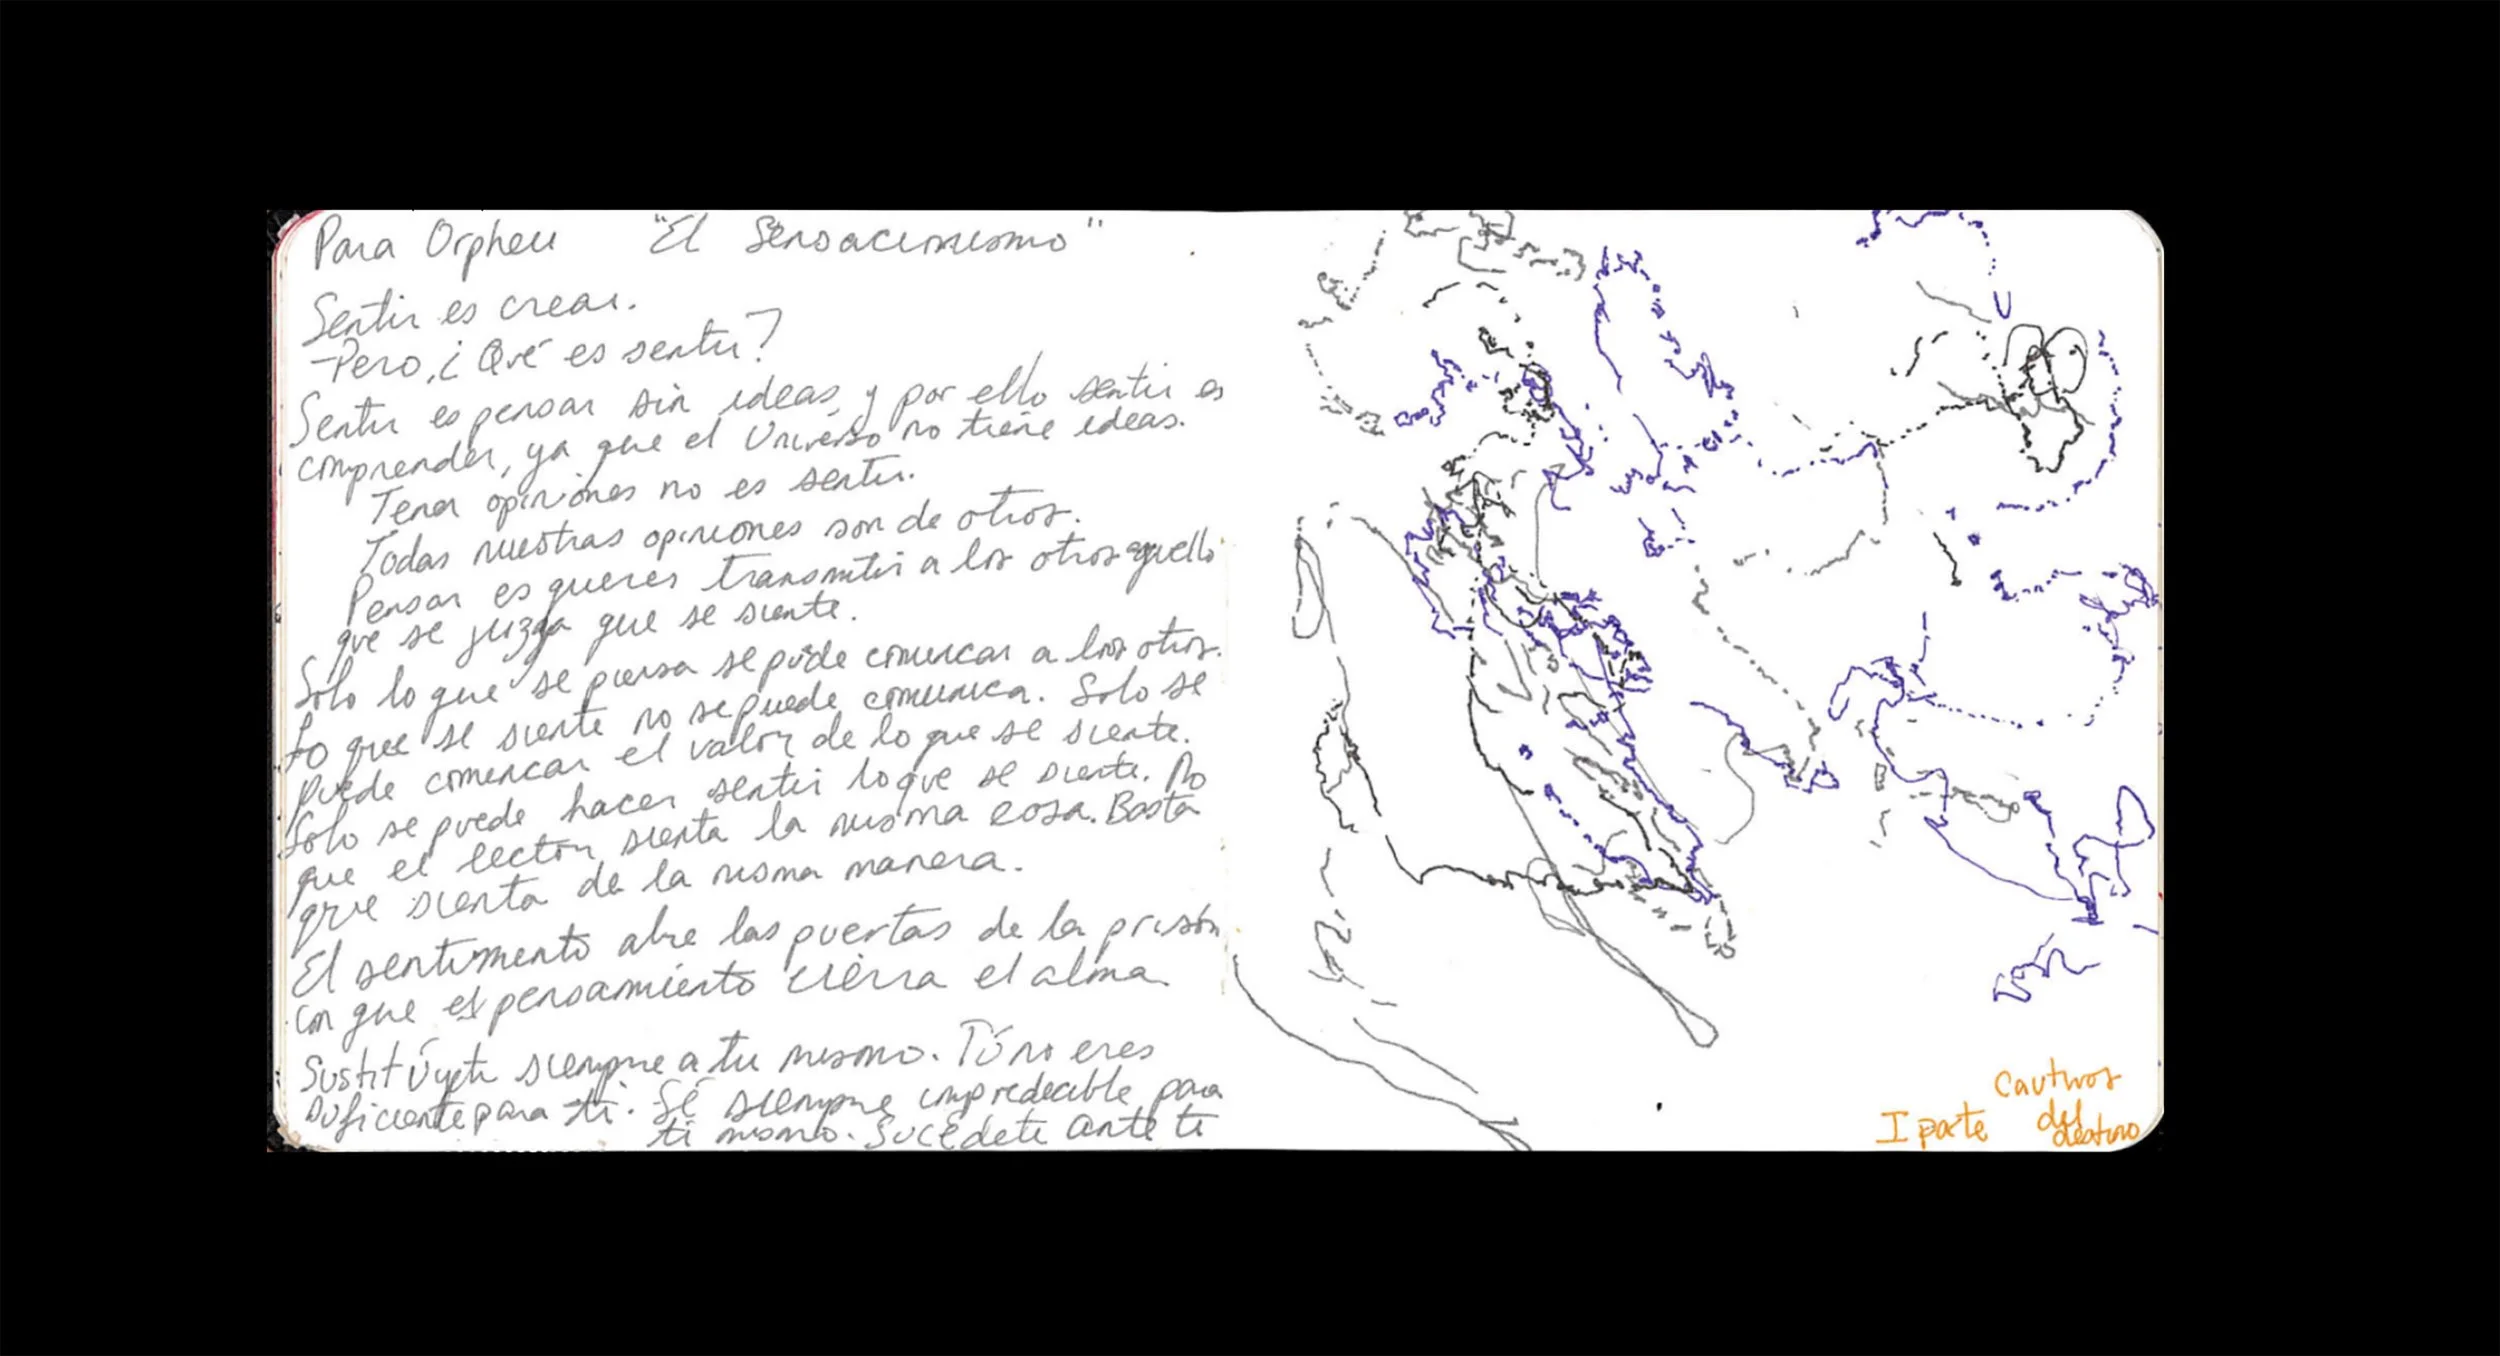 Para Orpheu "El Sensacionismo"
Sentir es crear.
-Pero, ¿Qué es sentir?
Sentir es pensar sin ideas, y por ello sentir es
comprender, ya que el Universo no tiene ideas.
Tener opiniones no es sentir.
Todas nuestras opiniones son de otros.
Pensar es querer transmitir a los otros aquello
que se juzga que se siente.
Solo lo que se piensa se puede comunicar a los otros.
Lo que se siente no se puede comunica. Solo se
puede comunicar el valor de lo que se siente.
Solo se puede hacer sentir lo que se siente. No
que el lector sienta la misma cosa. Basta
que sienta de la misma manera.
El sentimento abre las puertas de la prisón
con que el pensamiento cierra el alma.
Sustitúyete siempre a tu mismo. Tú no eres
suficiente para ti. Sé siempre impredecible para
ti mismo. Sucédete ante ti
Cautivos
I parte del
destino